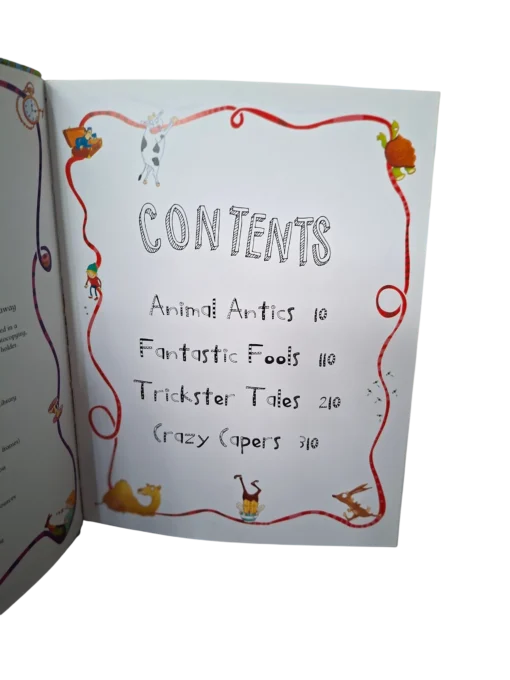 away
CONTENTS
Animal Antics 10
Fantastic Fools 110
Trickster Tales 210
Crazy Capers 310